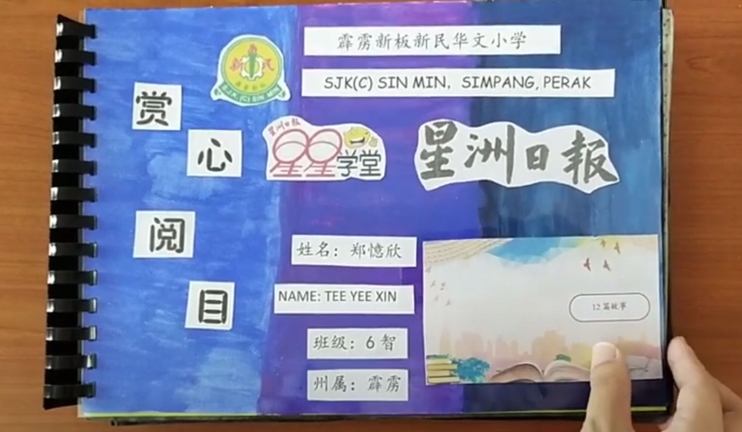 霹雳新板新民华文小学
SJK(C) SIN MIN, SIMPANG, PERAK
新民
SJK (C) SIN MIN
赏心阅目
星洲日报
星星学堂
星洲日報
姓名：郑憶欣
NAME: TEE YEE XIN
班级：6智
州属：霹雳
12篇故事